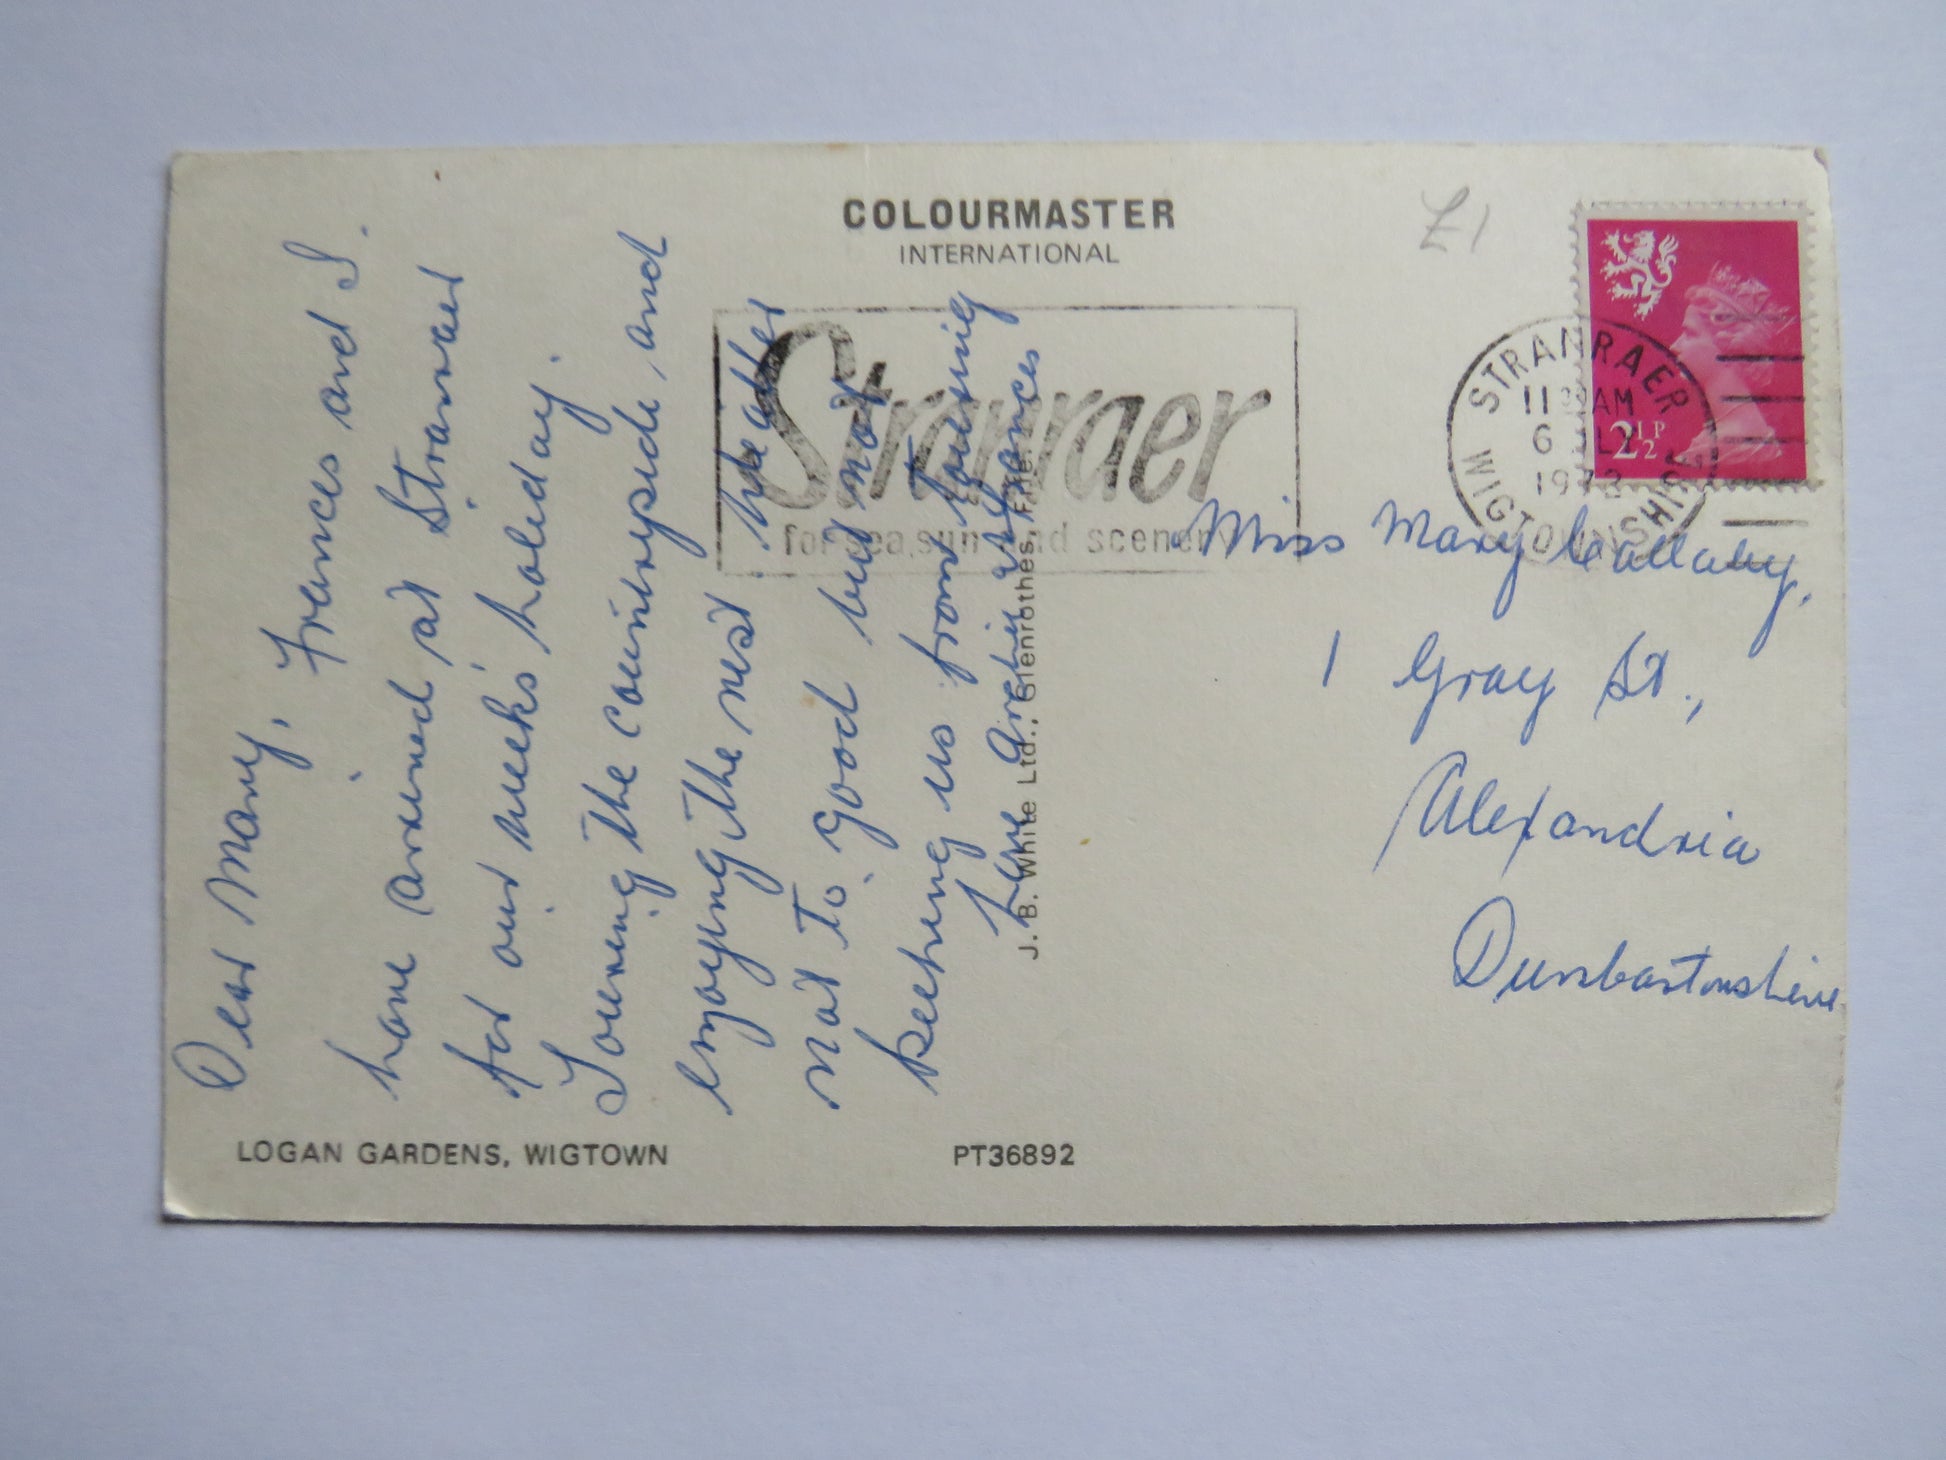 COLOURMASTER
INTERNATIONAL
£1
Stranraer
for sea, sun and scenery
STRANRAER
WIGTOWNSHIRE
11 AM
6 JLY
1972
2½P
Dear Mary, Frances and I
have arrived at Stranraer
for our week's holiday.
Touring the countryside, and
enjoying the rest. Weather
not to good but not
keeping us from touring
Love Archie & Frances
Miss Mary Callaby,
1 Gray St.,
Alexandria
Dunbartonshire
J. B. White Ltd., Glenrothes, Fife.
LOGAN GARDENS, WIGTOWN
PT36892